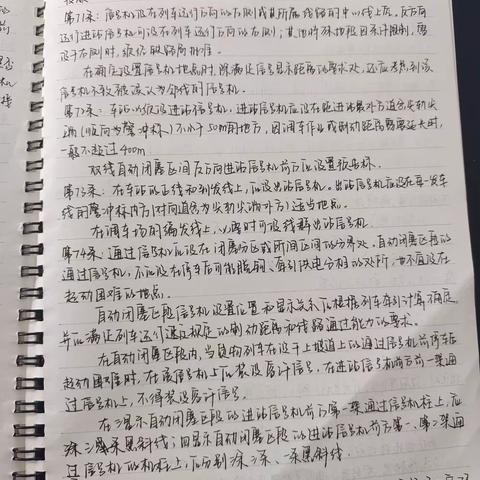 第71条: 信号机设在列车运行方向的左侧或其所属线路的中心线上空。反方向
运行进站信号机可设在列车运行方向的右侧; 其他特殊地段因条件限制, 需
设于右侧时, 须经铁路局批准。
在确定设置信号机地点时, 除满足信号显示距离的要求外, 还应考虑到该
信号机不致被误认为邻线的信号机。
第72条: 车站必须设进站信号机, 进站信号机应设在距进站最外方道岔尖轨尖
端(顺向为警冲标)不小于50m的地方, 因调车作业或制动距离需要延长时,
一般不超过400m
双线自动闭塞区间反方向进站信号机前方应设置预告标。
第73条: 在车站的正线和到发线上, 应设出站信号机。出站信号机应设在每一发车
线的警冲标内方(对向道岔为尖轨尖端外方)适当地点。
在调车场的编发线上, 必要时可设线群出站信号机。
第74条: 通过信号机应设在闭塞分区或所间区间的分界处, 自动闭塞区段的
通过信号机, 不应设在停车后可能脱钩、牵引供电分相的处所, 也不宜设在
起动困难的地点。
自动闭塞区段信号机设置位置和显示关系应根据列车牵引计算确定,
并应满足列车运行速度规定的制动距离和线路通过能力的要求。
在自动闭塞区段内, 当货物列车在设于上坡道上的通过信号机前停车后
起动困难时, 在该信号机上应装设容许信号, 在进站信号机前方第一架通
过信号机上, 不得装设容许信号。
在三显示自动闭塞区段的进站信号机前方第一架通过信号机柱上, 应
涂三条黑斜线; 四显示自动闭塞区段的进站信号机前方第一、第二架通
过信号机的机柱上, 应分别涂三条、一条黑斜线